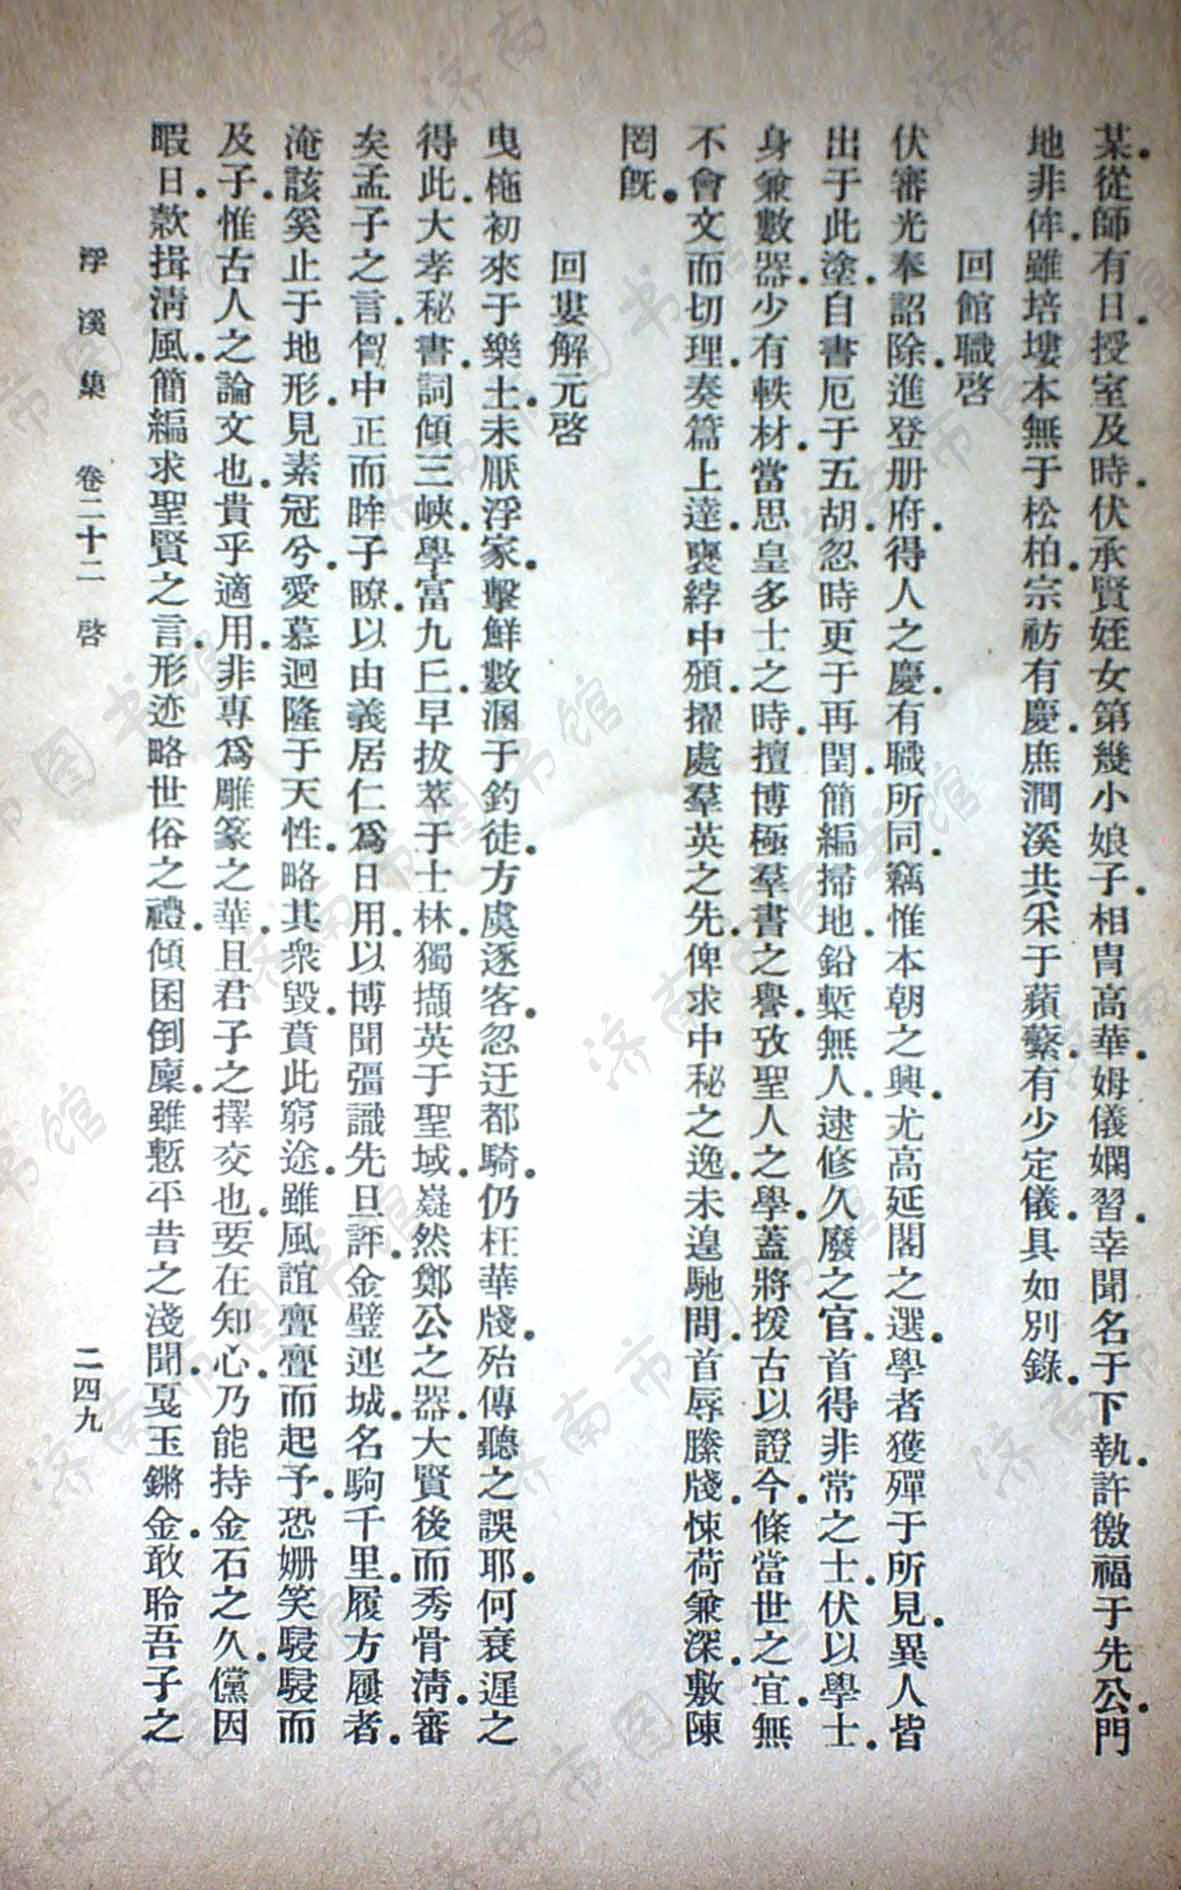 某從師有日．授室及時．伏承賢姪女第幾小娘子．相冑高華．姆儀嫻習．幸聞名于下執．許徼福于先公．門
地非侔．雖培塿本無于松柏．宗祊有慶．庶澗溪共采于蘋蘩．有少定儀．具如別錄．
回館職啓
伏審光奉詔除．進登册府．得人之慶．有職所同．竊惟本朝之興．尤高延閣之選．學者獲殫于所見．異人皆
出于此塗．自書厄于五胡．忽時更于再閏．簡編掃地．鉛塹無人．逮修久廢之官．首得非常之士．伏以學士．
身兼數器．少有軼材．當思皇多士之時．擅博極羣書之譽．攷聖人之學．蓋將援古以證今．條當世之宜．無
不會文而切理．奏篇上達．褒綍中頒．擢處羣英之先．俾求中秘之逸．未遑馳問．首辱縢牋．悚荷兼深．敷陳
罔旣．
回婁解元啓
曳柂初來于樂土．未厭浮家．擊鮮數溷于釣徒．方虞逐客．忽迂都騎．仍枉華牋．殆傳聽之誤耶．何衰遲之
得此．大孝秘書．詞傾三峽．學富九丘．早拔萃于士林．獨擷英于聖域．嶷然鄭公之器．大賢後而秀骨淸．審
矣孟子之言．胷中正而眸子瞭．以由義居仁爲日用．以博聞彊識先旦評．金璧連城．名駒千里．履方屨者．
淹該奚止于地形．見素冠兮．愛慕迥隆于天性．略其衆毀．賁此窮途．雖風誼亹亹而起予．恐姍笑駸駸而
及子．惟古人之論文也．貴乎適用．非專爲雕篆之華．且君子之擇交也．要在知心．乃能持金石之久．儻因
暇日．款揖淸風．簡編求聖賢之言．形迹略世俗之禮．傾囷倒廩．雖慙平昔之淺聞．戛玉鏘金．敢聆吾子之
浮溪集 卷二十二 啓 二四九